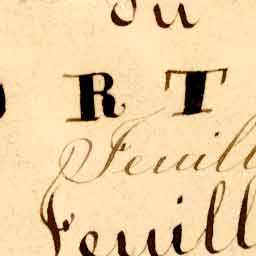 du
ORT
Feuill
Feuill